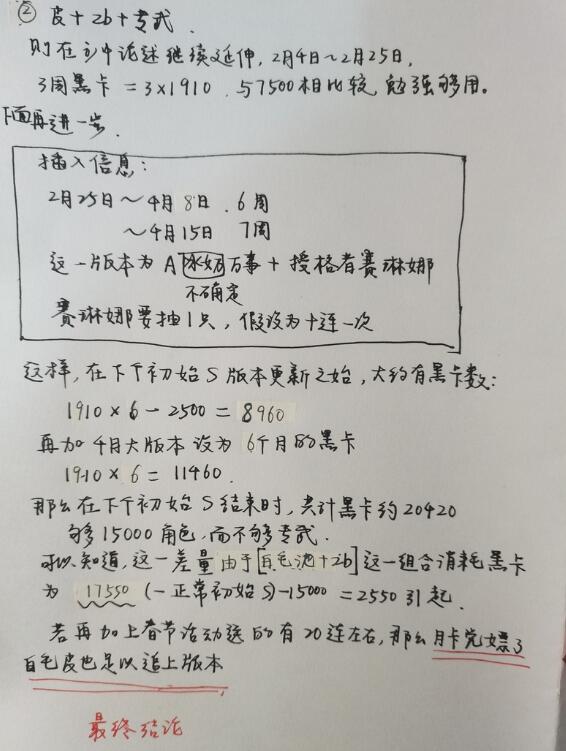 ② 皮+2b+专武.
则在①中论述继续延伸, 2月4日~2月25日,
3周黑卡 = 3×1910. 与7500相比较, 勉强够用。
下面再进一步.
插入信息:
2月25日~4月8日. 6周
~4月15日 7周
这一版本为A 冰奶 万事 + 授格者赛琳娜
不确定
赛琳娜要抽1只, 假设为十连一次
这样, 在下个初始S版本更新之始, 大约有黑卡数:
1910×6-2500=8960
再加4月大版本 设为6个月的黑卡
1910×6=11460.
那么在下个初始S结束时, 共计黑卡约20420
够15000角色, 而不够专武.
可以知道, 这一差量由于[白毛池+2b]这一组合消耗黑卡
为 17550 (一正常初始S)-15000=2550引起.
若再加上春节活动送的有20连左右, 那么月卡党嫖了
白毛皮也足以追上版本
最终结论